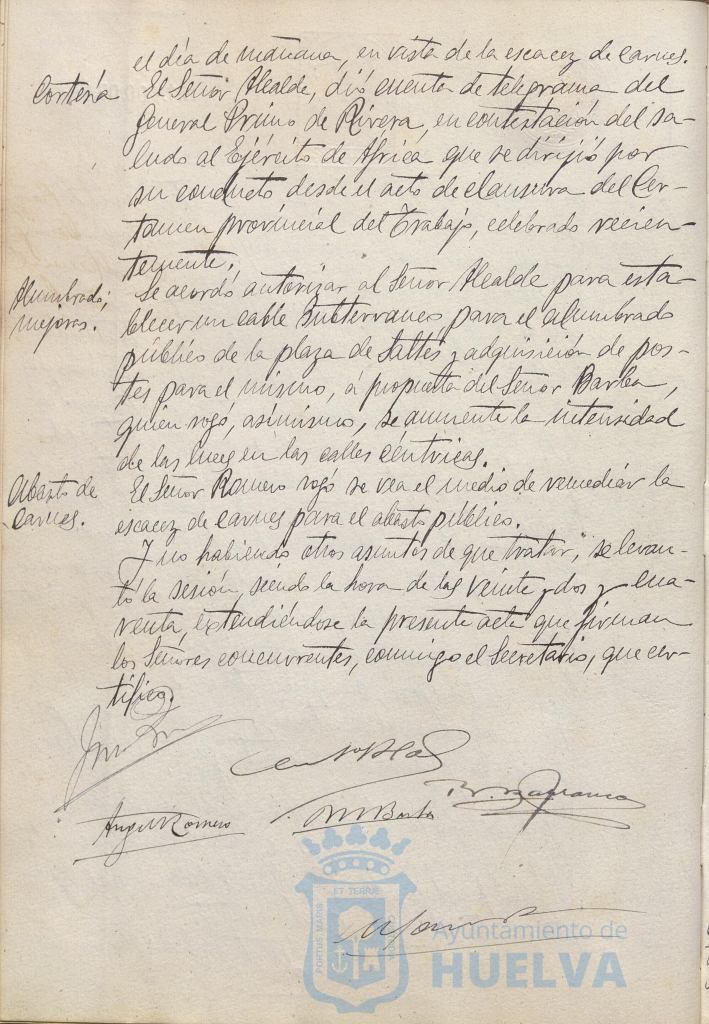 el día de mañana, en vista de la escacez de carnes.
Cortesía
El Señor Alcalde, dió cuenta de telegrama del
General Primo de Rivera, en contestación del sa-
ludo al Ejército de Africa que se dirijió por
su conducto desde el acto de clausura del Cer-
tamen provincial del Trabajo, celebrado recien-
temente.
Alumbrado;
mejoras.
Se acordó autorizar al Señor Alcalde para esta-
blecer un cable subterraneo para el alumbrado
público de la plaza de Saltés y adquisición de pos-
tes para el mismo, á propuesta del Señor Barba,
quien rogó, asimismo, se aumente la intensidad
de las luces en las calles céntricas.
Abasto de
Carnes.
El Señor Romero rogó se vea el medio de remediar la
escacez de carnes para el abasto público.
Y no habiendo otros asuntos de que tratar, se levan-
tó la sesión, siendo la hora de las veinte y dos y cua-
renta, extendiéndose la presente acta que firman
los Señores concurrentes, conmigo el Secretario, que cer-
tifico.
Angel Romero
M Barba
PORTUS MARIS
ET TERRÆ
CUSTODIA
Ayuntamiento de
HUELVA